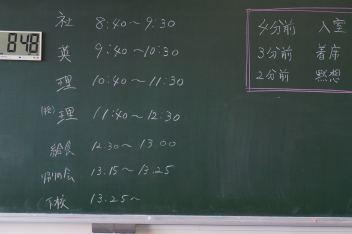 848
社 8:40〜9:30
英 9:40〜10:30
理 10:40〜11:30
理 11:40〜12:30
給食 12:30〜13:00
帰りの会 13:15〜13:25
下校 13:25〜
4分前 入室
3分前 着席
2分前 黙想